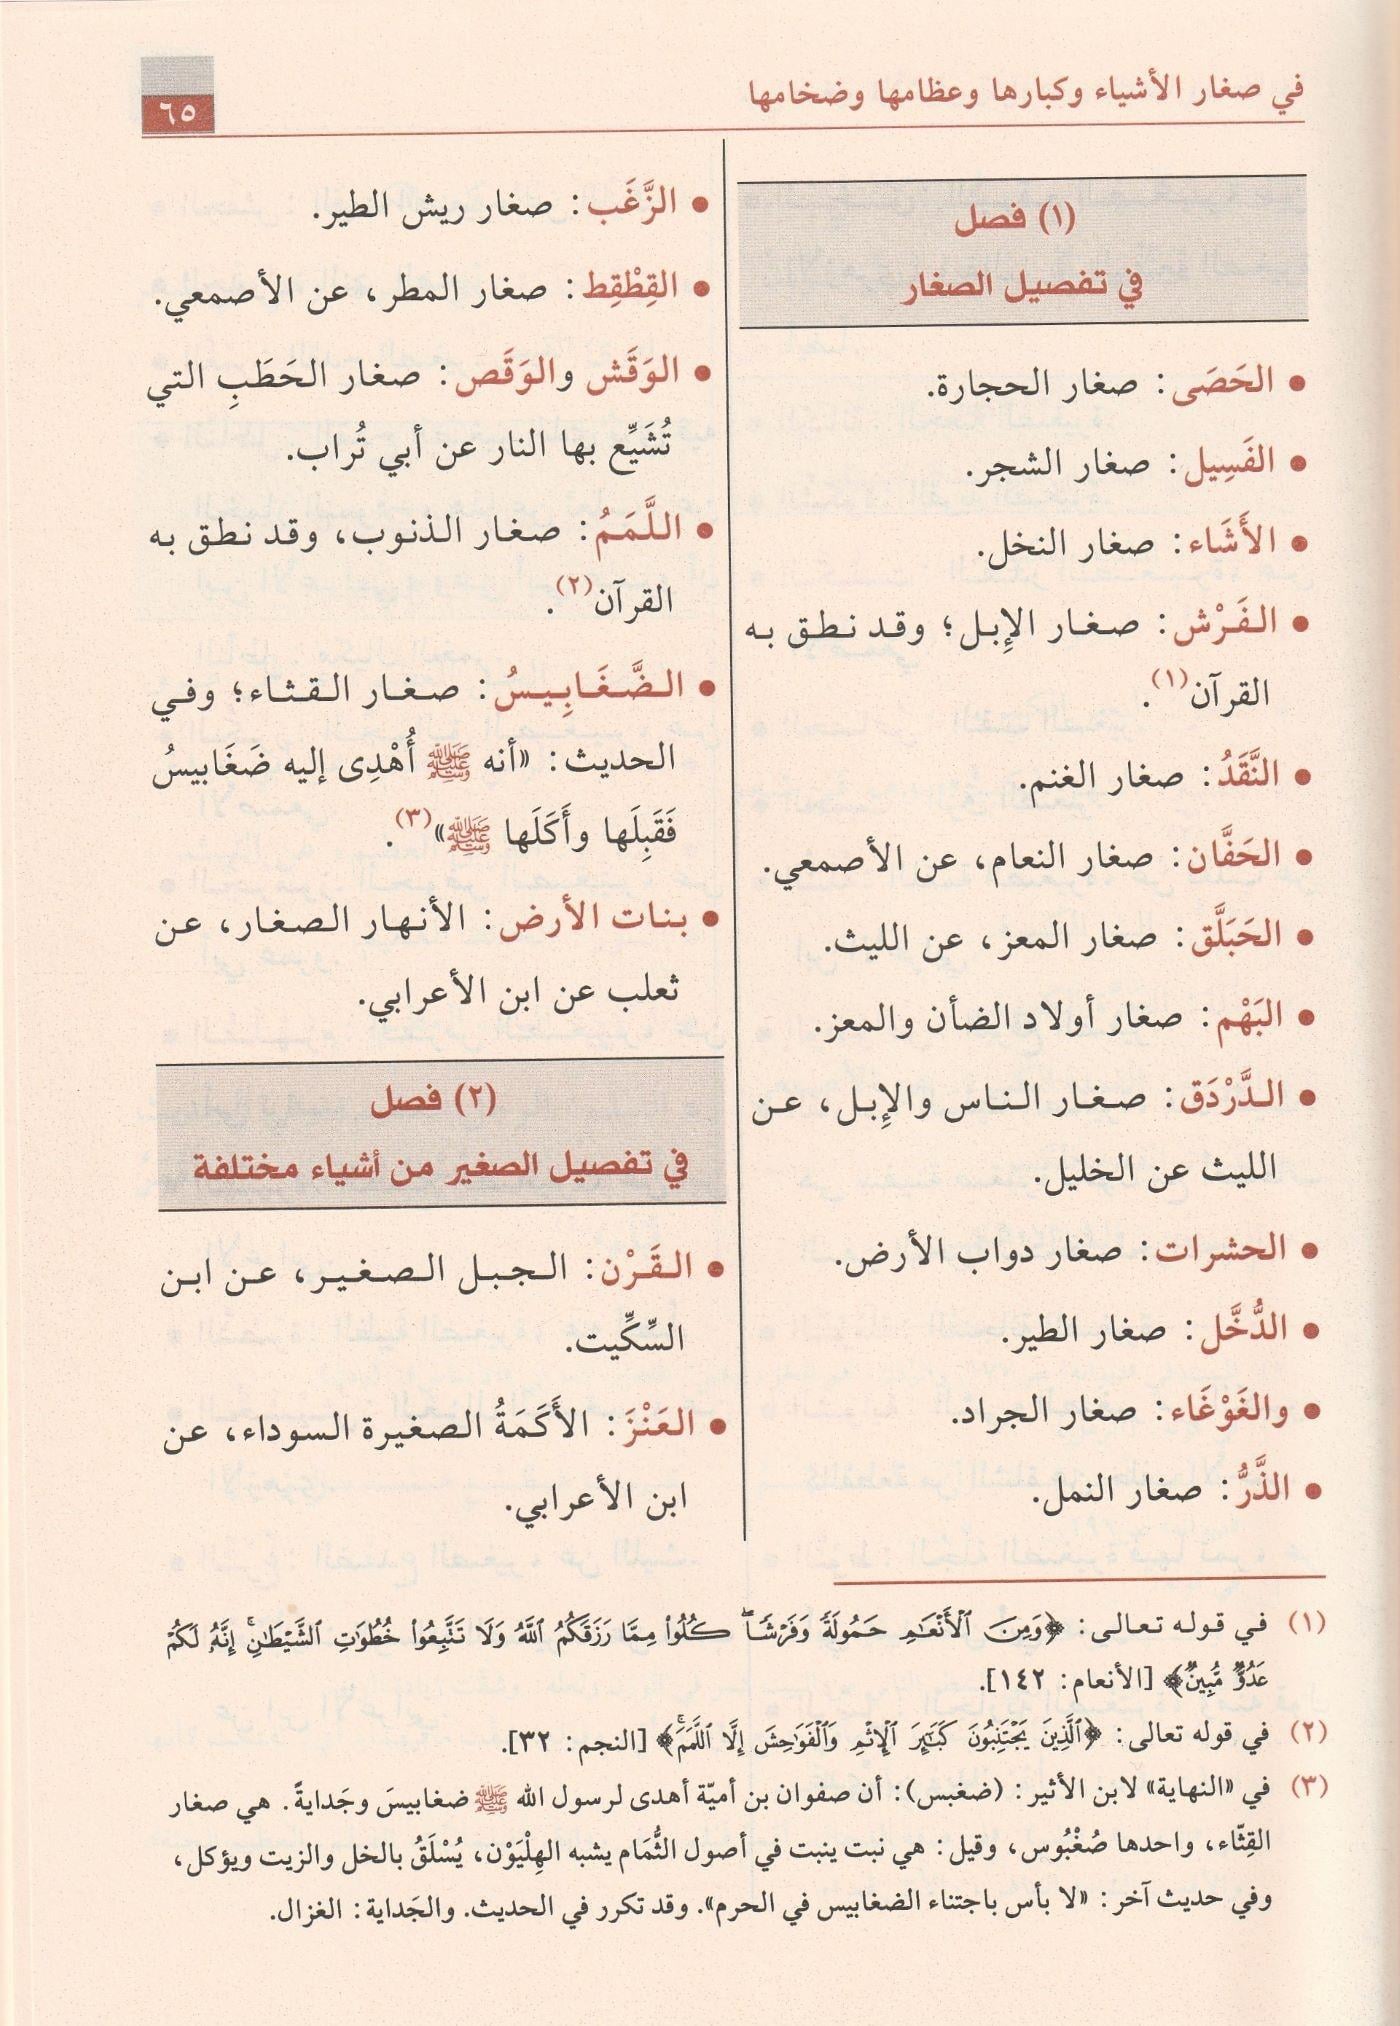 في صغار الأشياء وكبارها وعظامها وضخامها
٦٥
(١) فصل
في تفصيل الصغار
• الحَصَى: صغار الحجارة.
• الفَسِيل: صغار الشجر.
• الأَشَاء: صغار النخل.
• الفَرْش: صغار الإِبل؛ وقد نطق به
القرآن(١).
• النَّقَدُ: صغار الغنم.
• الحَفَّان: صغار النعام، عن الأصمعي.
• الحَبَلَّق: صغار المعز، عن الليث.
• البَهْم: صغار أولاد الضأن والمعز.
• الدَّرْدَق: صغار الناس والإِبل، عن
الليث عن الخليل.
• الحشرات: صغار دواب الأرض.
• الدُّخَّل: صغار الطير.
• والغَوْغَاء: صغار الجراد.
• الذَّرُّ: صغار النمل.
• الزَّغَب: صغار ريش الطير.
• القِطْقِط: صغار المطر، عن الأصمعي.
• الوَقَش والوَقَص: صغار الحَطَبِ التي
تُشَيِّع بها النار عن أبي تُراب.
• اللَّمَمُ: صغار الذنوب، وقد نطق به
القرآن(٢).
• الضَّغَابِيسُ: صغار القثاء؛ وفي
الحديث: «أنه ﷺ أُهْدِى إليه ضَغَابيسُ
فَقَبِلَها وأَكَلَها ﷺ»(٣).
• بنات الأرض: الأنهار الصغار، عن
ثعلب عن ابن الأعرابي.
(٢) فصل
في تفصيل الصغير من أشياء مختلفة
• القَرْن: الجبل الصغير، عن ابن
السِّكِّيت.
• العَنْزَ: الأَكَمَةُ الصغيرة السوداء، عن
ابن الأعرابي.
(١) في قوله تعالى: ﴿وَمِنَ ٱلْأَنْعَـٰمِ حَمُولَةً وَفَرْشًا ۚ كُلُوا۟ مِمَّا رَزَقَكُمُ ٱللَّهُ وَلَا تَتَّبِعُوا۟ خُطُوَٰتِ ٱلشَّيْطَـٰنِ ۚ إِنَّهُۥ لَكُمْ
عَدُوٌّ مُّبِينٌ﴾ [الأنعام: ١٤٢].
(٢) في قوله تعالى: ﴿ٱلَّذِينَ يَجْتَنِبُونَ كَبَـٰٓئِرَ ٱلْإِثْمِ وَٱلْفَوَٰحِشَ إِلَّا ٱللَّمَمَ ۚ﴾ [النجم: ٣٢].
(٣) في «النهاية» لابن الأثير: (ضغبس): أن صفوان بن أميّة أهدى لرسول الله ﷺ ضغابيسَ وجَدايةً. هي صغار
القِثّاء، واحدها ضُغْبُوس، وقيل: هي نبت ينبت في أصول الثُّمَام يشبه الهِلْيَوْن، يُسْلَقُ بالخل والزيت ويؤكل،
وفي حديث آخر: «لا بأس باجتناء الضغابيس في الحرم». وقد تكرر في الحديث. والجَداية: الغزال.